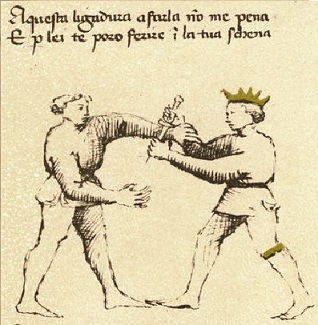 Aquesta ligadura a farla nō me pena
E p lei te poro ferire ī la tua schena